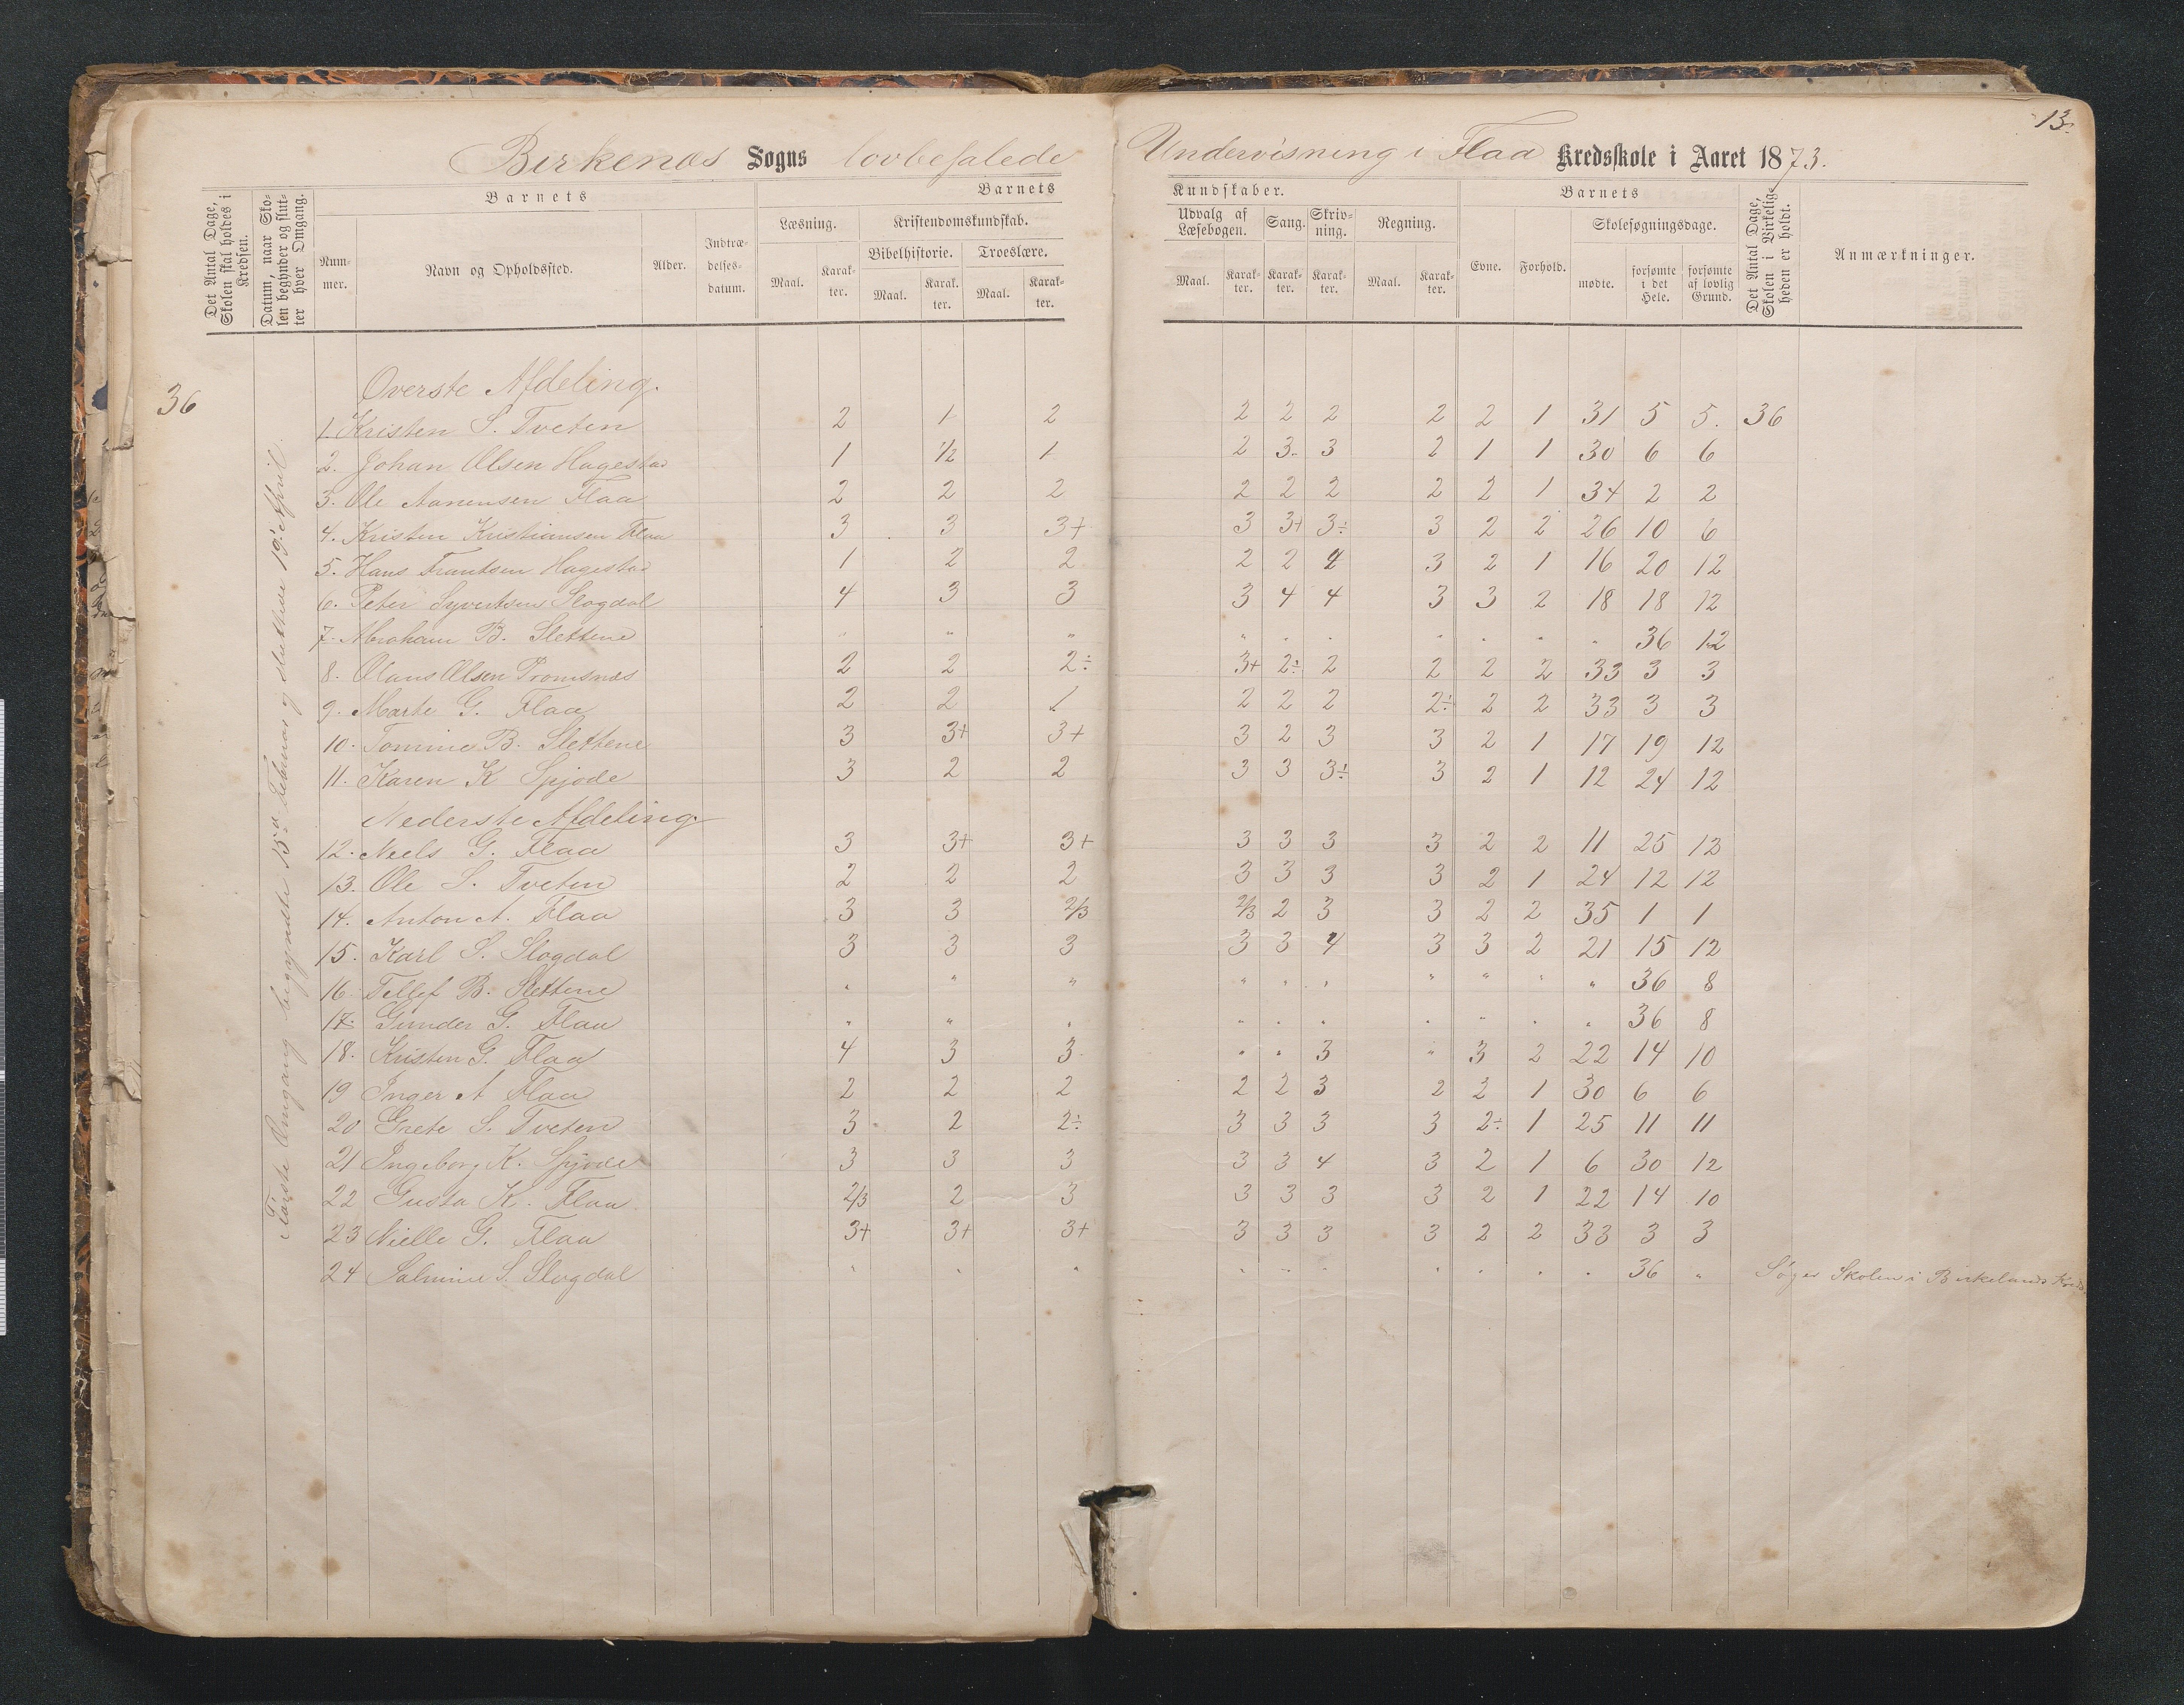 13.
Birkenæs Sogns lovbefalede Undervisning i Flaa Kredsskole i Aaret 1873.
Det Antal Dage, Skolen skal holdes i Kredsen.
Datum, naar Skolen begynder og slutter hver Omgang.
Barnets
Nummer.
Navn og Opholdssted.
Alder.
Indtrædelsesdatum.
Barnets Kundskaber.
Læsning.
Maal. Karakter.
Kristendomskundskab.
Bibelhistorie. Troeslære.
Maal. Karakter. Maal. Karakter.
Udvalg af Læsebogen.
Maal. Karakter.
Sang.
Karakter.
Skrivning.
Karakter.
Regning.
Maal. Karakter.
Barnets
Evne. Forhold.
Skolesøgningsdage.
mødte. forsømte i det Hele. forsømte af lovlig Grund.
Det Antal Dage, Skolen i Virkeligheden er holdt.
Anmærkninger.
36
Første Omgang begyndte 15de Februar og sluttede 19. April.
Øverste Afdeling.
1. Kristen S. Tveten 2 1 2 2 2 2 2 2 1 31 5 5. 36
2. Johan Olsen Hagestad 1 1/2 1 2 3 3 2 1 1 30 6 6
3. Ole Aanensen Flaa 2 2 2 2 2 2 2 2 1 34 2 2
4. Kristen Kristiansen Flaa 3 3 3+ 3 3+ 3÷ 3 2 2 26 10 6
5. Hans Frantsen Hagestad 1 2 2 2 2 4 3 2 1 16 20 12
6. Peter Syvertsen Slogdal 4 3 3 3 4 4 3 3 2 18 18 12
7. Abraham B. Slettene " " " " " " " " " " 36 12
8. Olaus Olsen Tromsnæs 2 2 2÷ 3+ 2÷ 2 2 2 2 33 3 3
9. Marte G. Flaa 2 2 1 2 2 2 2÷ 2 2 33 3 3
10. Tomine B. Slettene 3 3+ 3+ 3 2 3 3 2 1 17 19 12
11. Karen K Spjode 3 2 2 3 3 3÷ 3 2 1 12 24 12
Nederste Afdeling
12. Neels G. Flaa 3 3+ 3+ 3 3 3 3 2 2 11 25 12
13. Ole S. Tveten 2 2 2 3 3 3 3 2 1 24 12 12
14. Anton A. Flaa 3 3 2/3 2/3 2 3 3 2 2 35 1 1
15. Karl S. Slogdal 3 3 3 3 3 4 3 3 2 21 15 12
16. Tellef B. Slettene " " " " " " " " " " 36 8
17. Gunder G. Flaa " " " " " " " " " " 36 8
18. Kristen G. Flaa 4 3 3 " " 3 " 3 2 22 14 10
19 Inger A Flaa 2 2 2 2 2 3 2 2 1 30 6 6
20 Grete S. Tveten 3 2 2÷ 3 3 3 3 2÷ 1 25 11 11
21 Ingeborg K. Spjode 3 3 3 3 3 4 3 2 1 6 30 12
22 Gusta K. Flaa 2/3 2 3 3 3 3 3 2 1 22 14 10
23 Nielle G. Flaa 3+ 3+ 3+ 3 3 3 3 2 2 33 3 3
24 Salmine S. Slogdal " " " " " " " " " " 36 " Søger Skolen i Birkelands Kreds